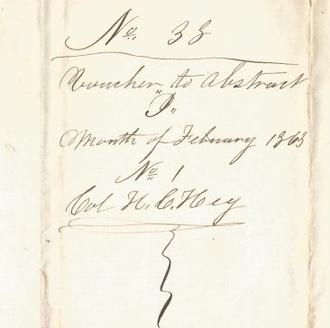 No. 38
Voucher to Abstract
"D"
Month of February 1863
No. 1
Col H. C. Hey